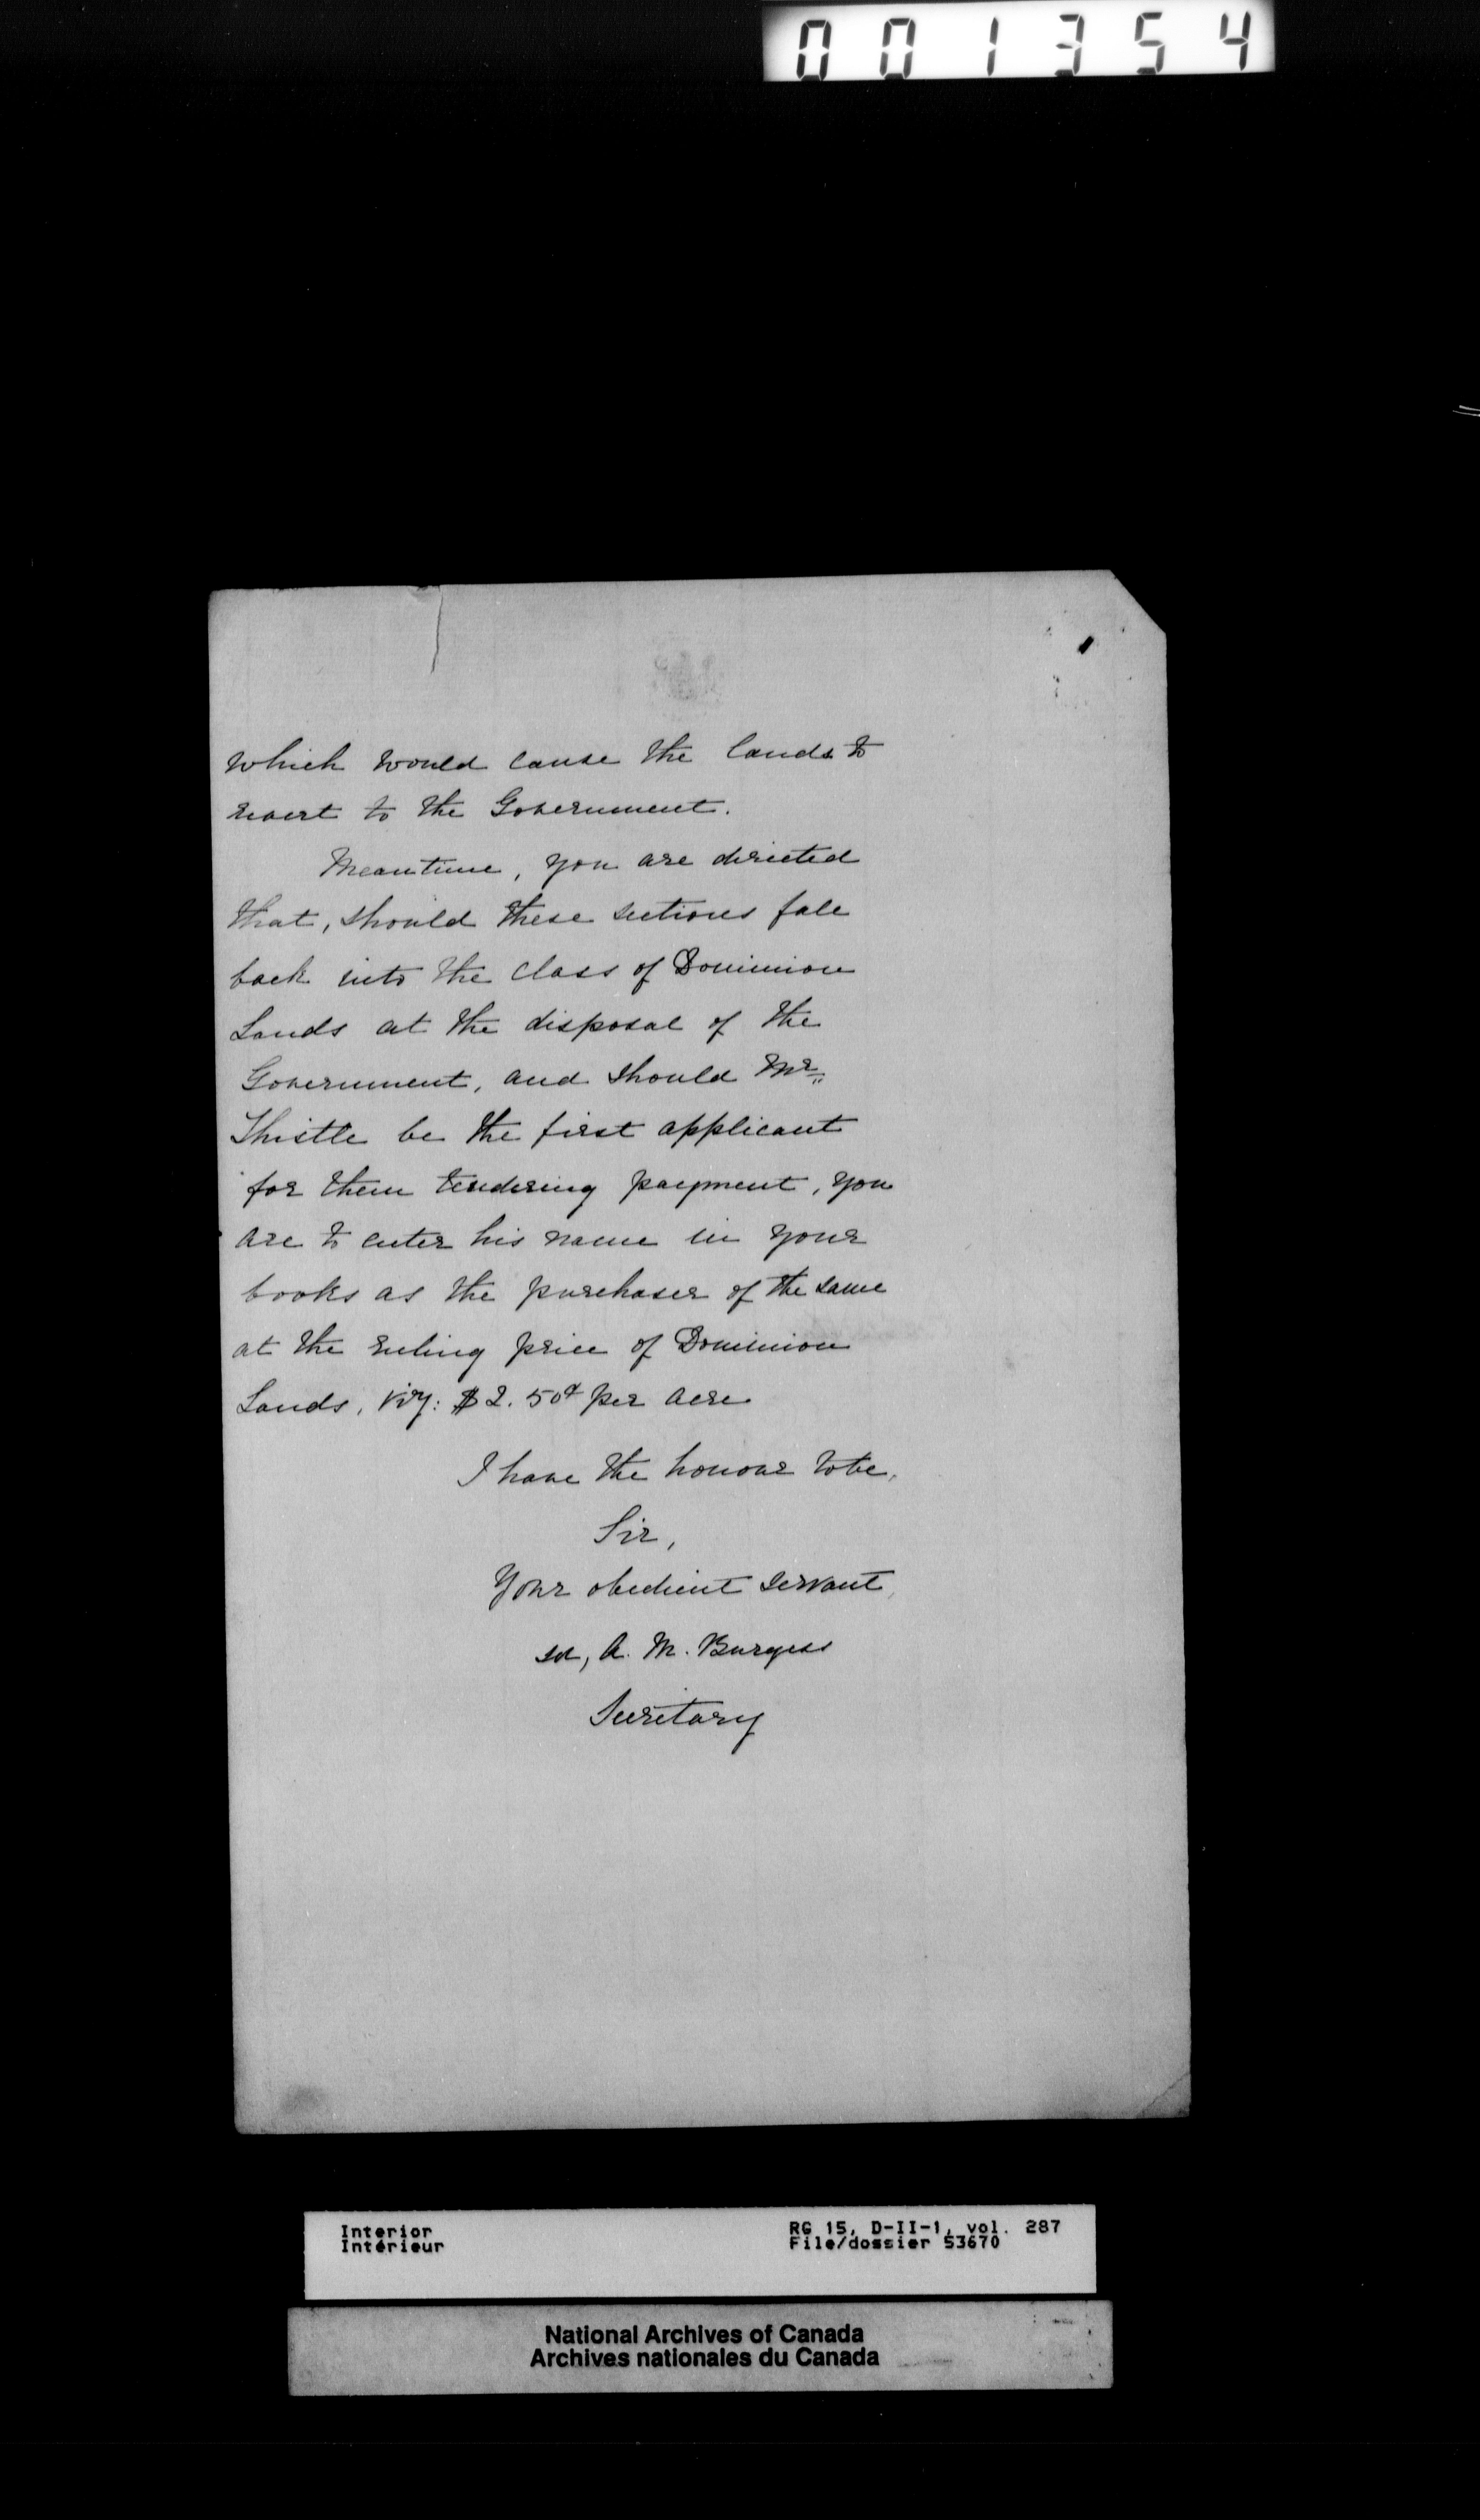 001354
which would cause the lands to
revert to the Government.
Meantime, you are directed
that, should these sections fall
back into the class of Dominion
Lands at the disposal of the
Government, and should Mr.
Thistle be the first applicant
for them tendering payment, you
are to enter his name in your
books as the purchaser of the same
at the ruling price of Dominion
Lands, viz: $2.50¢ per acre
I have the honour to be,
Sir,
Your obedient servant,
sd, A. M. Burgess
Secretary
Interior
Intérieur
RG 15, D-II-1, vol. 287
File/dossier 53670
National Archives of Canada
Archives nationales du Canada